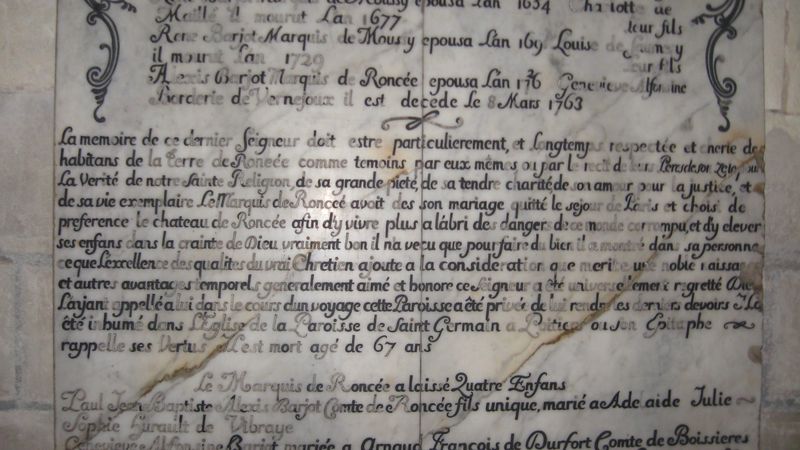 epousa Lan 1654 Charlotte de
Maillé il mourut Lan 1677 leur fils
Rene Barjot Marquis de Moussy epousa Lân 169 Louise de
il mourut Lan 1729 leur fils
Alexis Barjot Marquis de Roncée epousa Lân Genevieve Alfonsine
Borderie de Vernejoux il est decede Le 8 Mars 1763
La memoire de ce dernier Seigneur doit estre particulierement, et Longtemps respectée et cherie des
habitans de la terre de Roncée comme temoins par eux mêmes ou par le recit de leurs Peres de son zele, pour
La Verité de notre Sainte Religion, de sa grande pieté, de sa tendre charité de son amour pour la justice, et
de sa vie exemplaire Le Marquis de Roncée avoit des son mariage quitté le sejour de Paris et choisi de
preference le chateau de Roncée afin d'y vivre plus a l'âbri des dangers de ce monde corrompu, et d'y elever
ses enfans dans la crainte de Dieu vraiment bon il n'a vecu que pour faire du bien il a montré dans sa personne
ce que L'excellence des qualites du vrai Chretien ajoute a la consideration que merite une noble naissan
et autres avantages temporels generalement aimé et honore ce Seigneur a été universellement regretté Dieu
Layant appellé a lui dans le cours d'un voyage cette Paroisse a été privée de lui rendre les derniers devoirs Il a
été inhumé dans L'Eglise de la Paroisse de Saint Germain a Poitiers ou son Epitaphe
rappelle ses Vertus Il est mort agé de 67 ans
Le Marquis de Roncée a laissé Quatre Enfans
Paul Jean Baptiste Alexis Barjot Comte de Roncée fils unique, marié a Adelaide Julie
Sophie Hurault de Vibraye
Genevieve Alfonsine Barjot mariée a Arnaud François de Durfort Comte de Boissieres